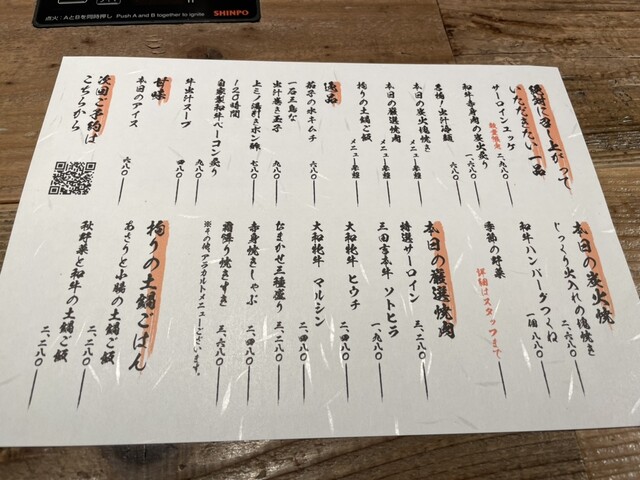 点火:AとBを同時押し Push A and B together to ignite
SHINPO
絶対に召し上がって
いただきたい一品
サーロインユッケ 数量限定 二、九八〇
和牛赤身肉の炭火炙り 一、六八〇
名物!出汁冷麺 一、六八〇
本日の炭火塊焼き メニュー参照
本日の厳選焼肉 メニュー参照
拘りの土鍋ご飯 メニュー参照
逸品
茄子の水キムチ 六八〇
一石三鳥な
出汁巻き玉子 九八〇
上ミノ湯引きポン酢 七八〇
120時間
自家製和牛ベーコン炙り 九八〇
牛出汁スープ 四八〇
甘味
本日のアイス 六八〇
次回ご予約は
こちらから
本日の炭火焼
じっくり火入れの塊焼き 二、六八〇
和牛ハンバーグつくね 一個 八八〇
季節の野菜 詳細はスタッフまで
本日の厳選焼肉
特選サーロイン 三、二八〇
三田吉本牛 ソトヒラ 一、九八〇
大和牝牛 ヒウチ 二、四八〇
大和牝牛 マルシン 二、二八〇
おまかせ三種盛り 三、二八〇
赤身焼きしゃぶ 二、四八〇
霜降り焼きすき 三、六八〇
※その他、アラカルトメニューございます。
拘りの土鍋ごはん
あさりと小腸の土鍋ご飯 二、二八〇
秋野菜と和牛の土鍋ご飯 二、二八〇